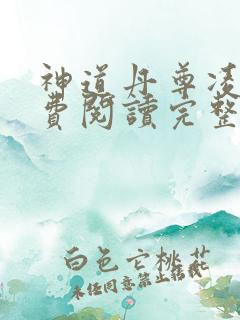 神道丹尊凌
費閱讀完整
白色亡桃花
未经同意禁止转载